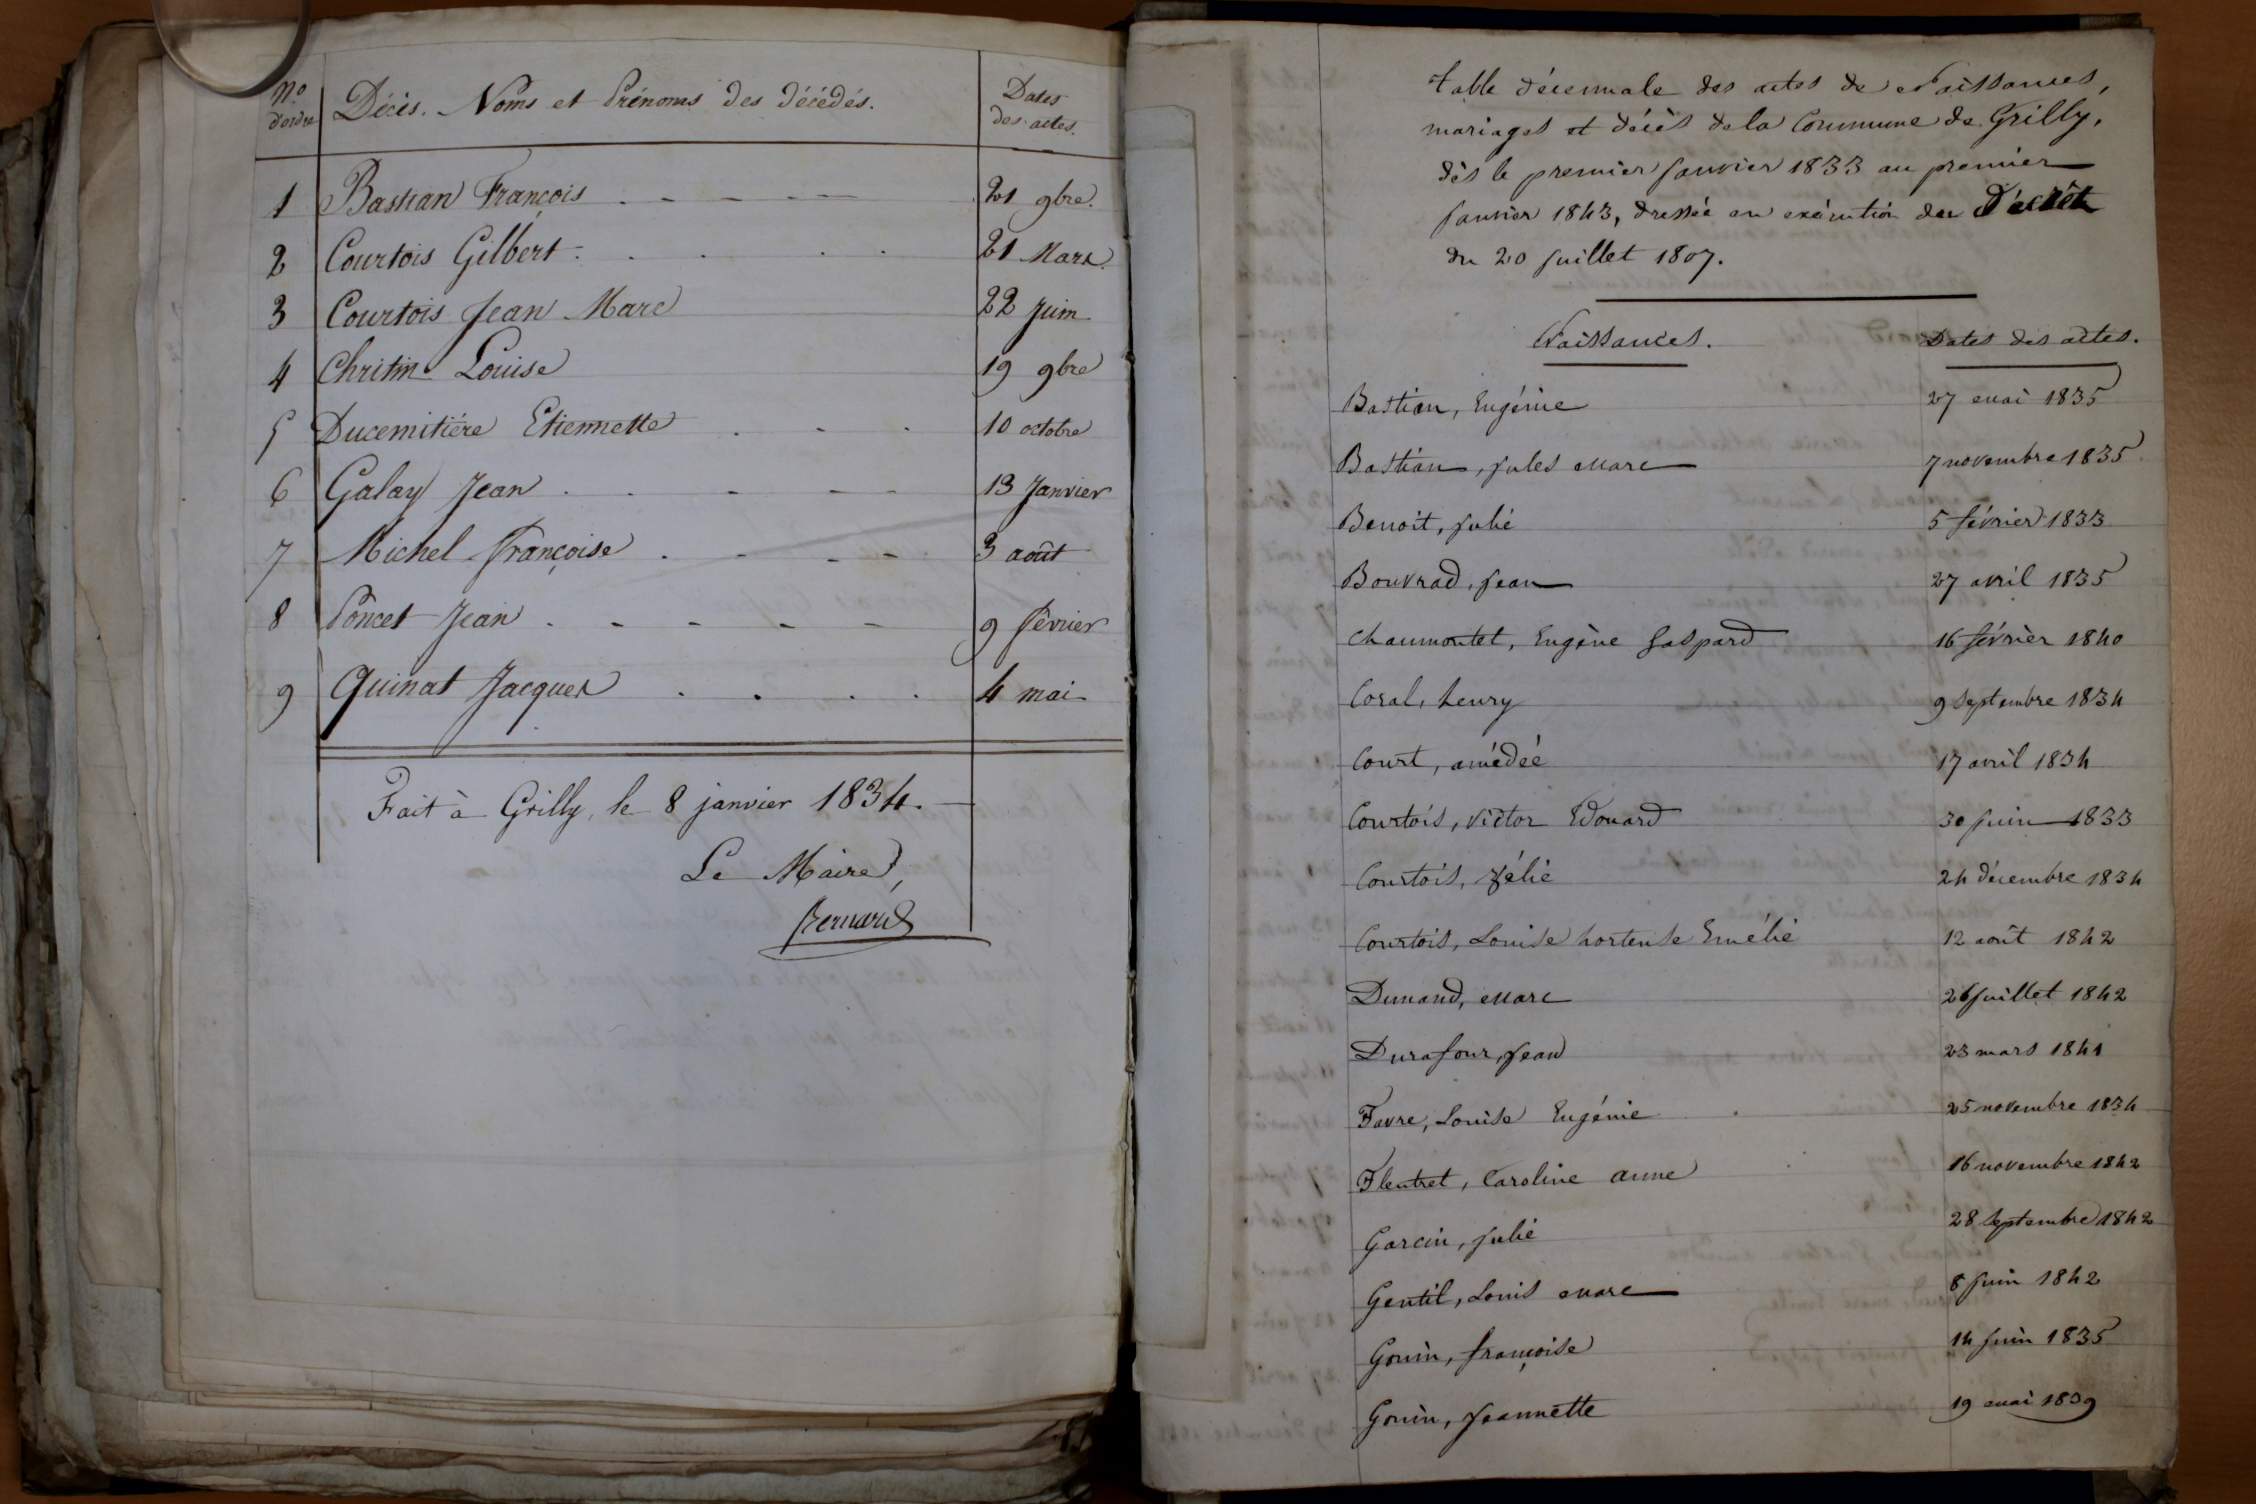 No d'ordre | Décès. Noms et Prénoms des décédés. | Dates des actes.
1 Bastian François 21 9bre.
2 Courtois Gilbert 21 Mars.
3 Courtois Jean Marc 22 Juin
4 Chritin Louise 19 9bre
5 Ducemitiére Etiennette 10 octobre
6 Galay Jean 13 Janvier
7 Michel françoise 3 août
8 Poncet Jean 9 février
9 Quinat Jacques 4 mai
Fait à Grilly, le 8 janvier 1834.
Le Maire,
Bernard
table décennale des actes de Naissances,
mariages et décès de la Commune de Grilly,
dès le premier janvier 1833 au premier
janvier 1843, dressée en exécution du Décrêt
du 20 juillet 1807.
Naissances. Dates des actes.
Bastian, Eugénie 27 mai 1835
Bastian, jules marc 7 novembre 1835
Benoit, julie 5 février 1833
Bouvrad, jean 27 avril 1835
Chaumontet, Eugène Gaspard 16 février 1840
Coral, henry 9 septembre 1834
Court, amédéé 17 avril 1834
Courtois, victor Edouard 30 juin 1833
Courtois, zélie 24 décembre 1834
Courtois, Louise hortense Emélie 12 août 1842
Dunand, marc 26 juillet 1842
Durafour, jean 23 mars 1841
Favre, Louise Eugénie 25 novembre 1834
Fleutret, Caroline anne 16 novembre 1842
Garcin, julie 28 septembre 1842
Gentil, Louis marc 8 juin 1842
Gouin, françoise 14 juin 1835
Gouin, jeannette 19 mai 1839